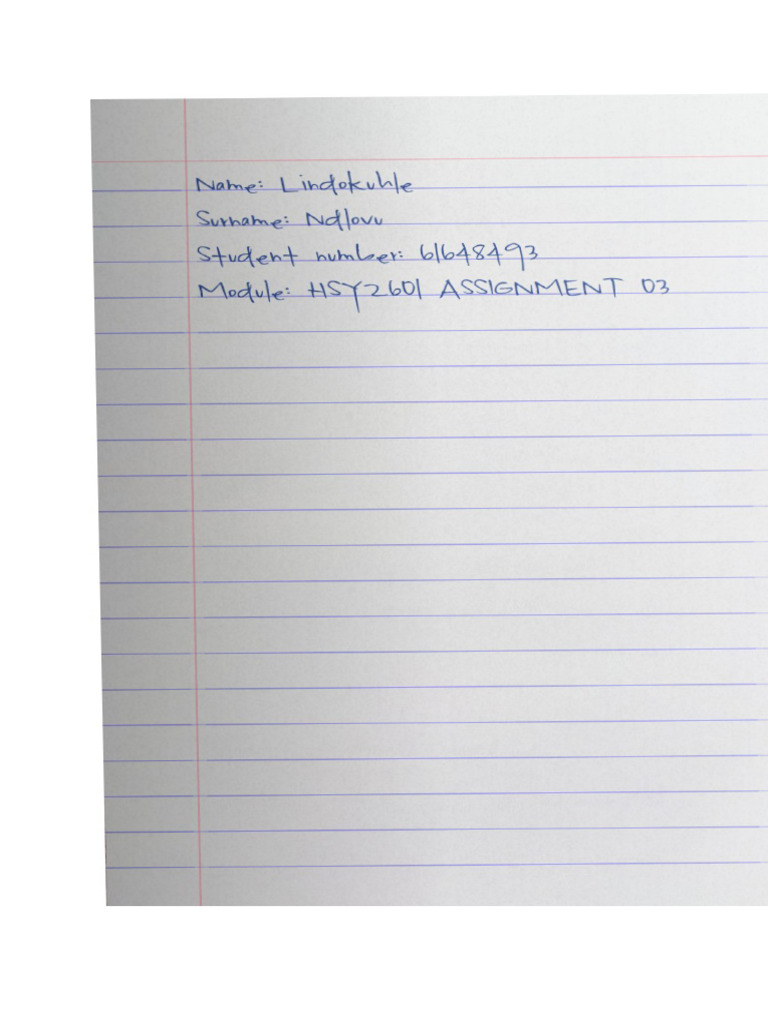 Name: Lindokuhle
Surname: Ndlovu
Student number: 61648493
Module: HSY2601 ASSIGNMENT 03